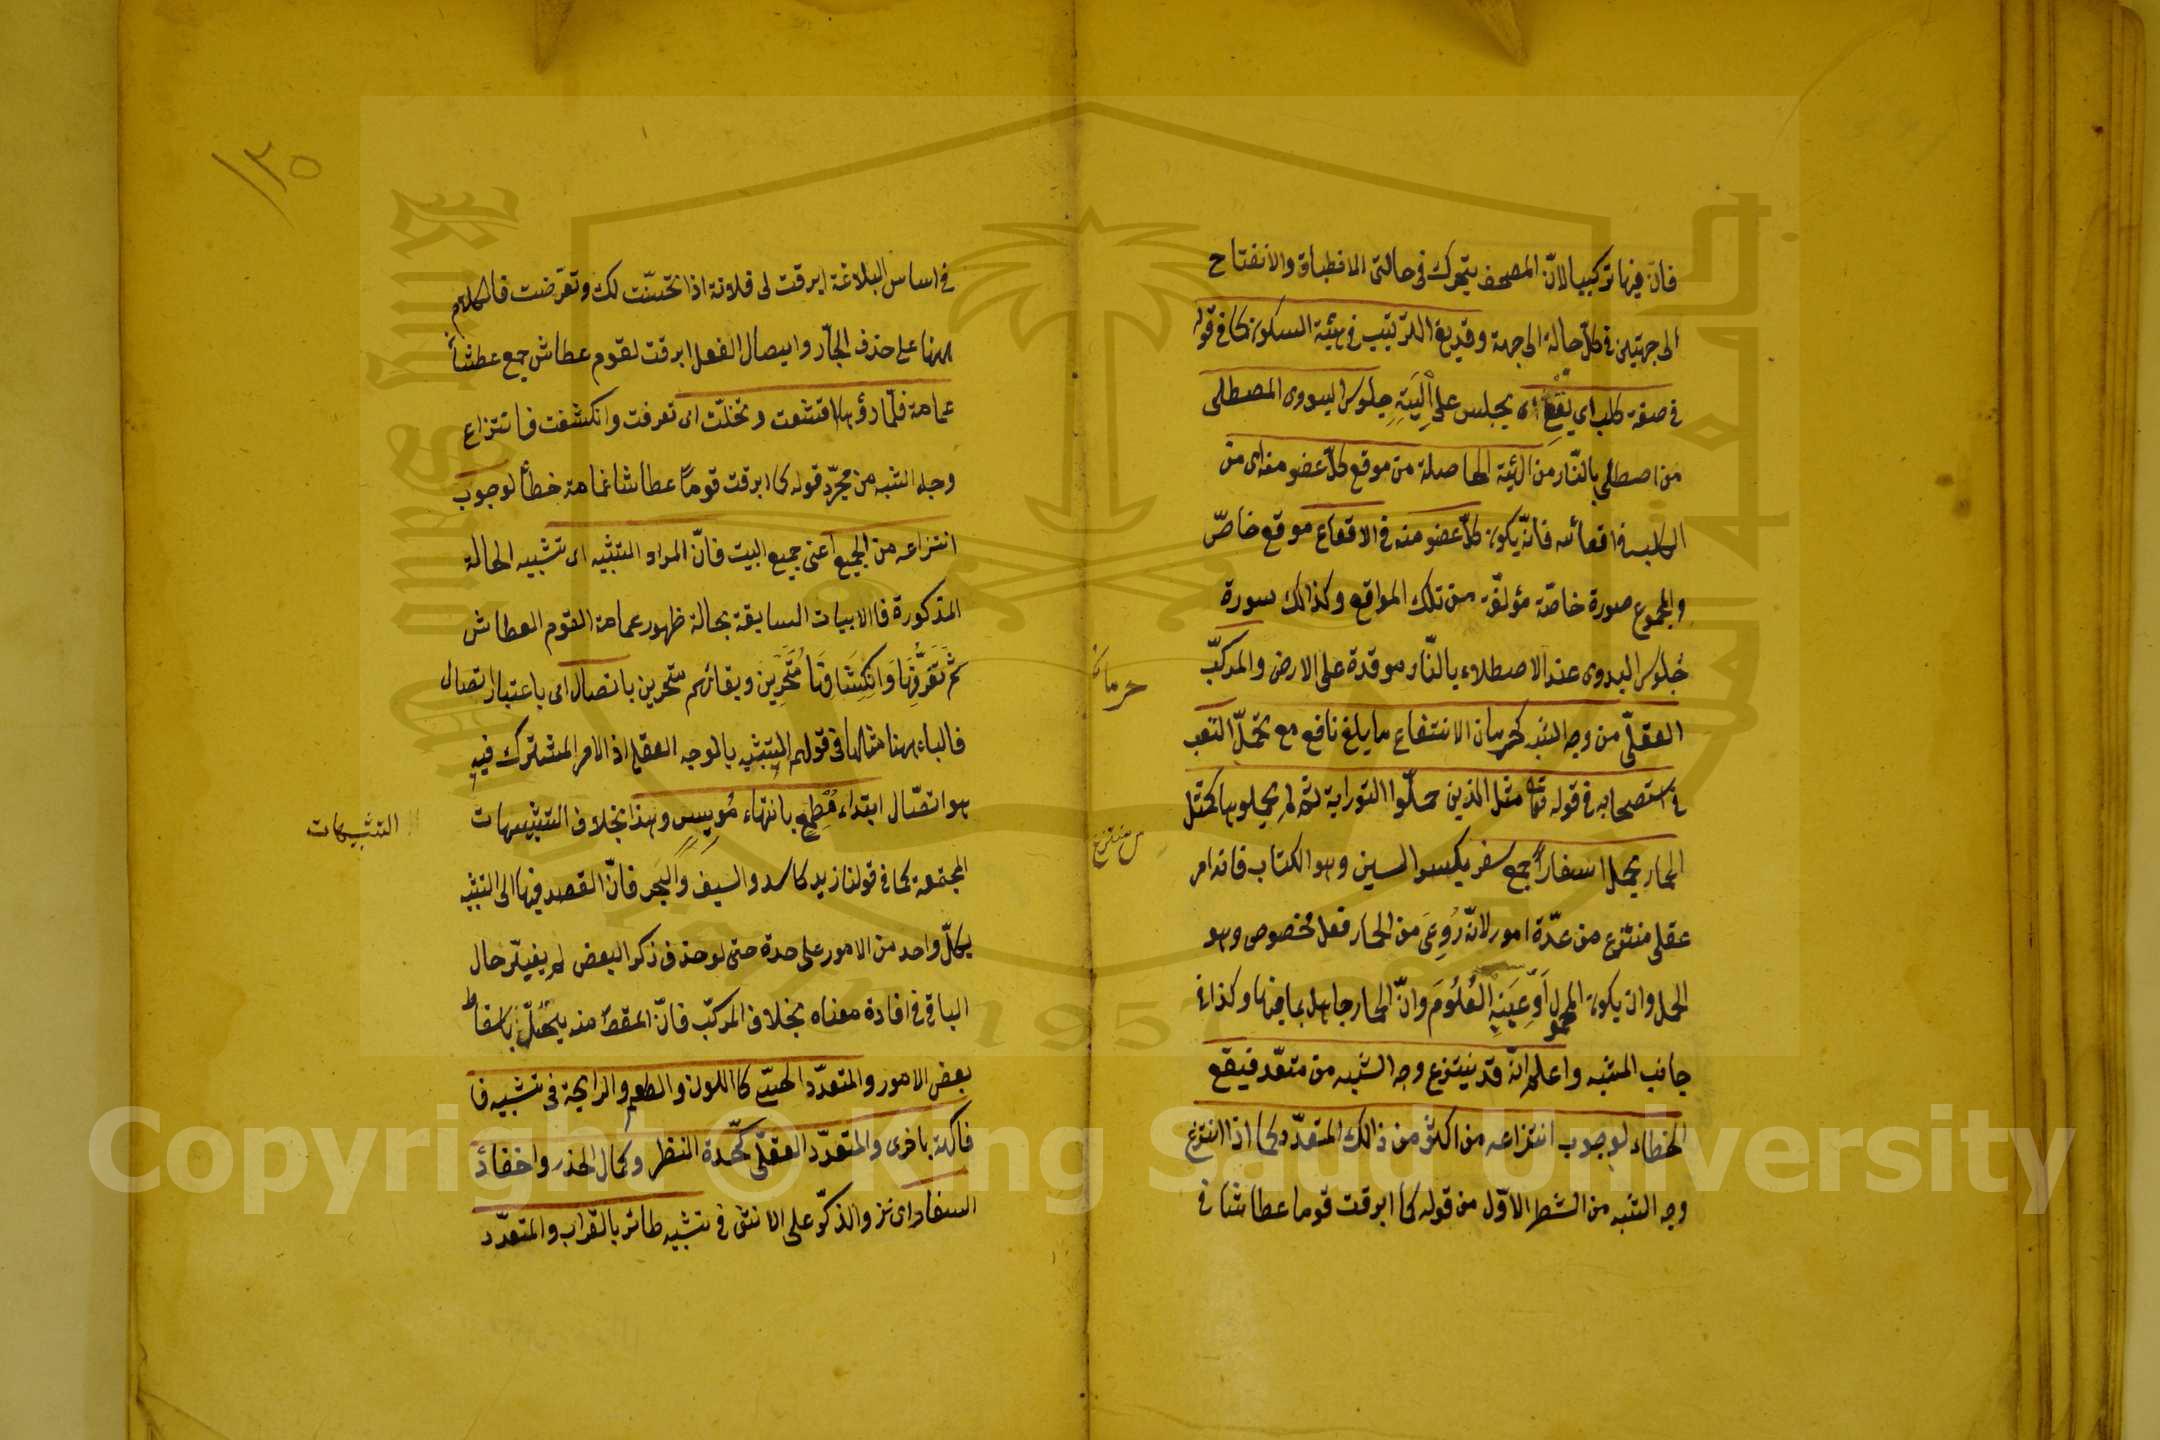 فان فيها تركيبا لانّ المصحف يتحرك فى حالتى الانطباق والانفتاح
الى جهتين فى كلّ حالة الى جهة وقد يقع التركيب فى هيئة السكون كما فى قوله
فى صفة كلب اى يقعى اى يجلس على اليتيه جلوس البدوى المصطلى
من اصطلى بالنّار من الهيئة الحاصلة من موقع كلّ عضو منه اى من
الكلب فى اقعائه فانّه يكون كلّ عضو منه فى الاقعاء موقع خاصّ
والمجموع صورة خاصّة مؤلفة من تلك المواقع وكذالك صورة
جُلوس البدوى عند الاصطلاء بالنّار موقدة على الارض والمركّب
العقلّى من وجه الشبه كحرمان الانتفاع بابلغ نافع مع تحمّل التعب
فى استصحابه فى قوله تعالى مثل الذين حمّلوا التوراية ثم لم يحملوها كمثل
الحمار يحمل اسفاراً جمع سفر بكسر السين وهو الكتاب فانه امر
عقلى منتزع من عدّة امور لانّه رُوعِىَ من الحمار فعل مخصوص وهو
الحمل وان يكون المحمول اَوْعِيَة العُلُومَ وانّ الحمار جاهل بما فيها وكذا فى
جانب المشبه واعلم انّه قد ينتزع وجه الشبه من متعدّد فيقع
الخطاء لوجوب انتزاعه من اكثر من ذالك المتعدّد كما اذا انتزع
وجه الشبه من الشطر الاوّل من قوله كما ابرقت قوما عطاشا فى
حرمان
منتزع
١٢٥
فى اساس البلاغة ابرقت لى فلانة اذا تحسّنت لك وتعرّضت فالكلام
ههنا على حذف الجارّ وايصال الفعل ابرقت لقوم عطاش جمع عطشان
غمامة فلمّا رؤها اقشعت وتجلّت اى تفرقت وانكشفت فانتزاع
وجه الشبه من مجرّد قوله كما ابرقت قوماً عطاشا غمامة خطأ لوجوب
انتزاعه من الجميع اعنى جميع البيت فانّ المراد التشبيه اى تشبيه الحالة
المذكورة فى الابيات السابقة بحالة ظهور غمامة القوم العطاش
ثمّ تَفَرُّقِهَا وَانْكِشَافِهَا مُتَحَيّرِين وبقائهم متحيرين باتصال اى باعتبار اتصال
فالباء ههنا مثلها فى قولهم التشبيه بالوجه العقلى اذ الامر المشترك فيه
هو اتصال ابتداء مُطمِع بانتهاء مُويِس وهذا بخلاف التشبيهات
المجتمعة كما فى قولنا زيد كالاسد والسيف والبحر فانّ القصد فيها الى التشبيه
بكلّ واحد من الامور على حدة حتى لو حذف ذكر البعض لم يتغيّر حال
الباقى فى افادة معناه بخلاف المركّب فانّ المقصد منه يختلّ باسقاط
بعض الامور والمتعدّد الحسّى كاللون والطعم والرايحة فى تشبيه فا
فاكهة باخرى والمتعدّد العقلّى كحّدة النظر وكمال الحذر واخفاء
السفاد اى نزو الذكر على الانثى فى تشبيه طائر بالغراب والمتعدّد
التشبيهات